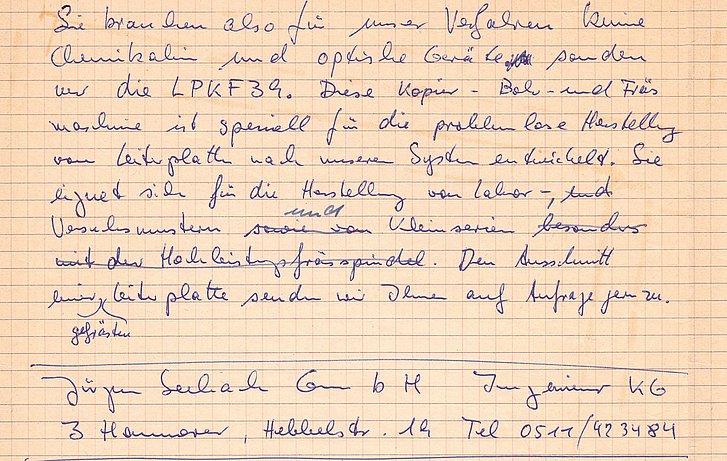 Sie brauchen also für unser Verfahren keine
Chemikalien und optische Geräte sondern
nur die LPKF39. Diese Kopier- Bohr- und Fräs
maschine ist speziell für die problemlose Herstellung
von Leiterplatten nach unserem System entwickelt. Sie
eignet sich für die Herstellung von Labor-, und
und
Versuchsmustern sowie von Kleinserien besonders
mit der Hochleistungsfrässpindel. Den Ausschnitt
einer Leiterplatte senden wir Ihnen auf Anfrage gern zu.
gefrästen
Jürgen Seebach GmbH Ingenieur KG
3 Hannover, Hebbelstr. Tel 0511/423484